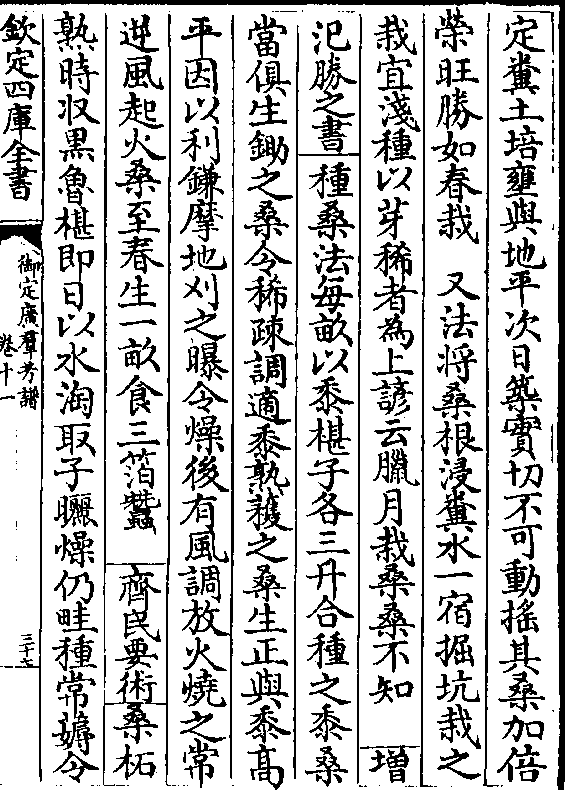 定糞土培壅與地平次日築實切不可動搖其桑加倍
榮旺勝如春栽　又法將桑根浸糞水一宿掘坑栽之
栽宜淺種以芽稀者為上諺云臘月栽桑桑不知　增
氾勝之書　種桑法每畝以黍椹子各三升合種之黍桑
當俱生鋤之桑令稀疎調適黍熟穫之桑生正與黍髙
平因以利鎌摩地刈之曝令燥後有風調放火燒之常
逆風起火桑至春生一畝食三箔蠶　齊民要術　桑柘
熟時收黒魯椹即日以水淘取子曬燥仍畦種常薅令
欽定四庫全書
御定廣羣芳譜
卷十一
三十六